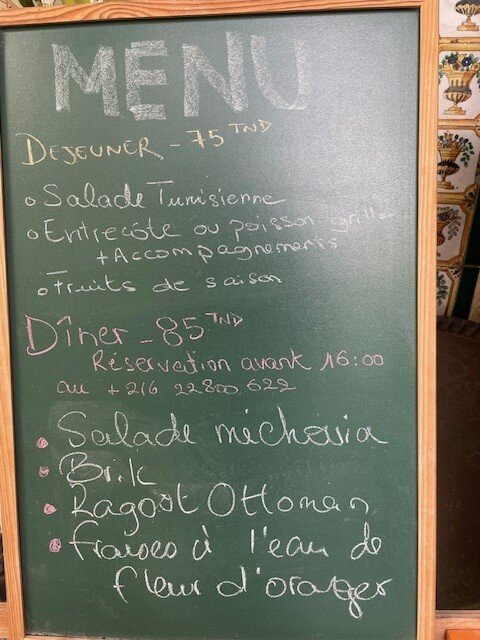 MENU
DEJEUNER - 75 TND
o Salade Tunisienne
o Entrecôte ou poisson grillé
+ Accompagnements
o Fruits de saison
Dîner - 85 TND
Réservation avant 16:00
au +216 22800.622
• Salade michouia
• Brik
• Ragoot Ottoman
• fraises à l'eau de
fleur d'oranger